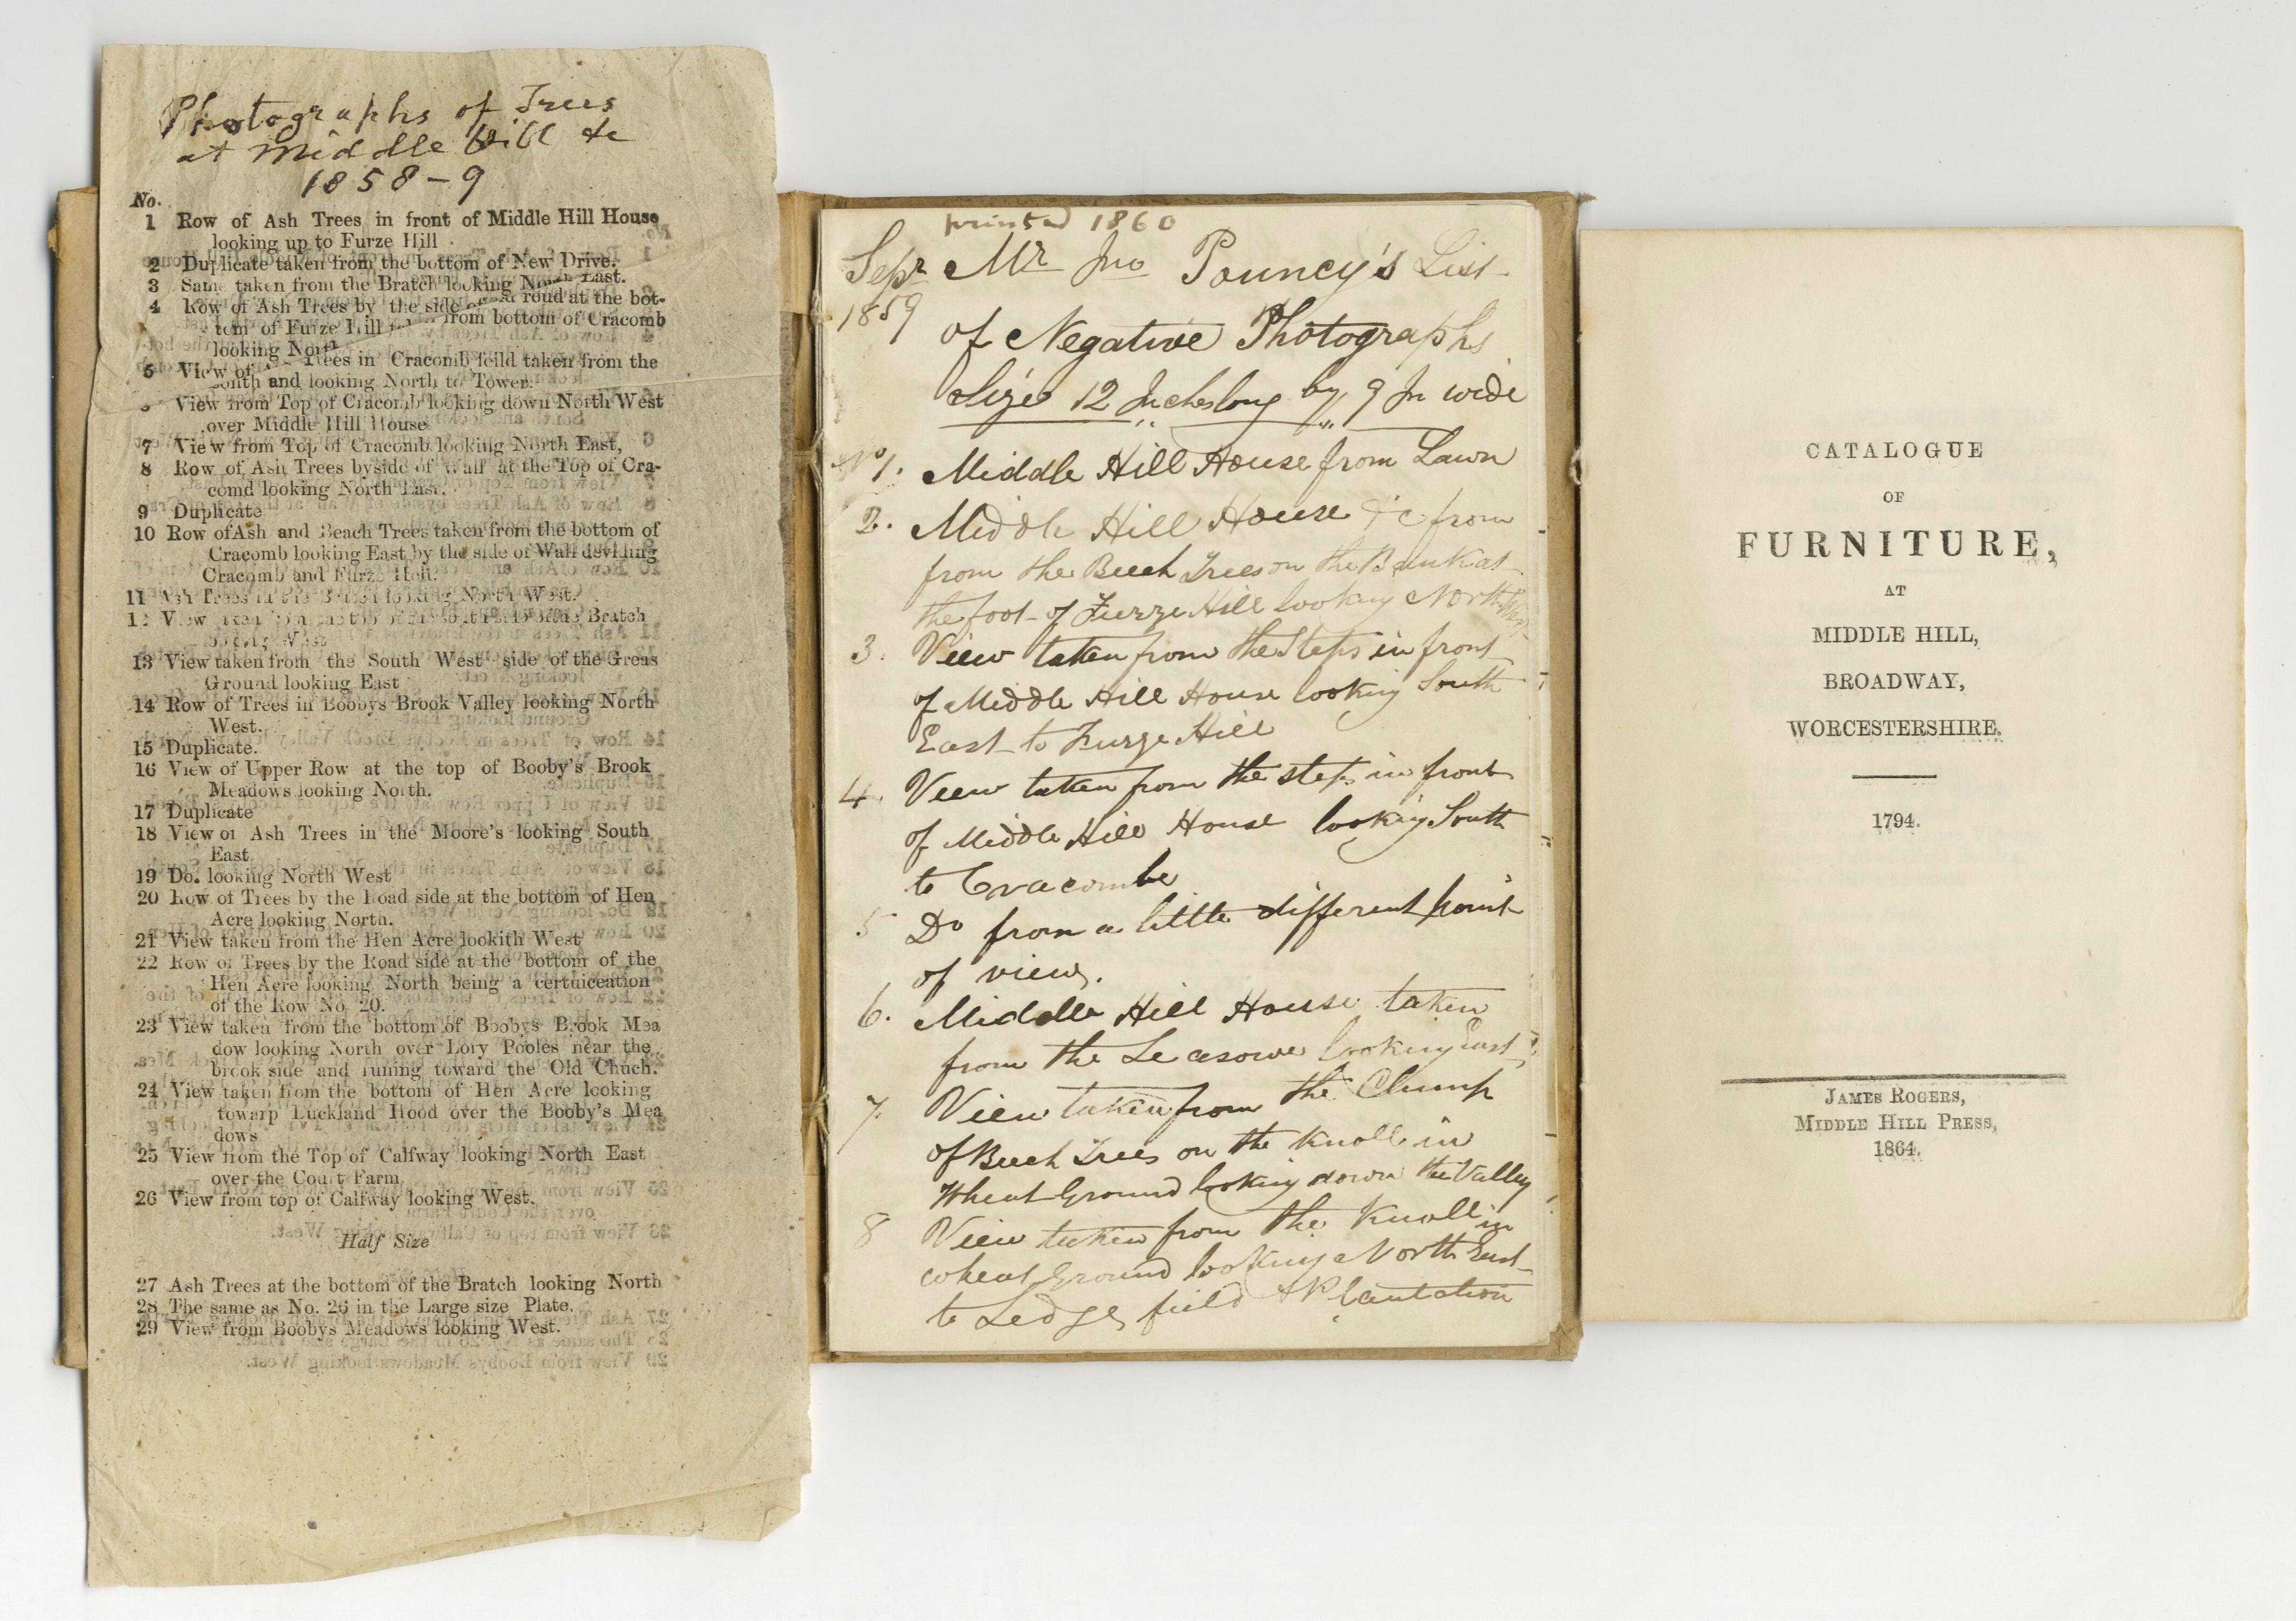 Photographs of Trees
at Middle Hill &c
1858-9
No.
1 Row of Ash Trees in front of Middle Hill House
looking up to Furze Hill
2 Duplicate taken from the bottom of New Drive.
3 Same taken from the Bratch looking North East.
4 Row of Ash Trees by the side of road at the bot-
tom of Furze Hill from bottom of Cracomb
looking North
5 View of Trees in Cracomb feild taken from the
South and looking North to Tower.
View from Top of Cracomb looking down North West
over Middle Hill House
7 View from Top of Cracomb looking North East,
8 Row of Ash Trees byside of Wall at the Top of Cra-
comd looking North East.
9 Duplicate
10 Row ofAsh and Beach Trees taken from the bottom of
Cracomb looking East by the side of Wall deviding
Cracomb and Furze Hell.
11 Ash Trees in the Bratch looking North West.
12 View Bratch
looking West
13 View taken from the South West side of the Greas
Ground looking East
14 Row of Trees in Boobys Brook Valley looking North
West.
15 Duplicate.
16 View of Upper Row at the top of Booby's Brook
Meadows looking North.
17 Duplicate
18 View of Ash Trees in the Moore's looking South
East
19 Do. looking North West
20 Row of Trees by the Road side at the bottom of Hen
Acre looking North.
21 View taken from the Hen Acre lookith West
22 Row of Trees by the Road side at the bottom of the
Hen Acre looking North being a certuiceation
of the Row No. 20.
23 View taken from the bottom of Boobys Brook Mea
dow looking North over Lory Pooles near the
brook side and runing toward the Old Chuch.
24 View taken from the bottom of Hen Acre looking
towarp Luckland Hood over the Booby's Mea
dows
25 View from the Top of Calfway looking North East
over the Court Farm
26 View from top of Calfway looking West.
Half Size
27 Ash Trees at the bottom of the Bratch looking North
28 The same as No. 26 in the Large size Plate.
29 View from Boobys Meadows looking West.
printed 1860
Sepr Mr Jno Pouncy's List
1859
of Negative Photographs
Size 12 Inches long by 9 In wide
No 1. Middle Hill House from Lawn
2. Middle Hill House &c from
from the Beech Trees on the Bank at
the foot of Furze Hill looking North West
3. View taken from the Steps in front
of Middle Hill House looking South
East to Furze Hill
4. View taken from the steps in front
of Middle Hill House looking South
to Cracombe
5 Do from a little different point
of view.
6. Middle Hill House taken
from the Leasowe looking East
7. View taken from the Clump
of Beech Trees on the Knoll in
Wheat Ground looking down the Valley
8 View taken from the Knoll in
wheat Ground looking North East
to Ledge field & Plantation
CATALOGUE
OF
FURNITURE,
AT
MIDDLE HILL,
BROADWAY,
WORCESTERSHIRE.
1794.
JAMES ROGERS,
MIDDLE HILL PRESS,
1864.